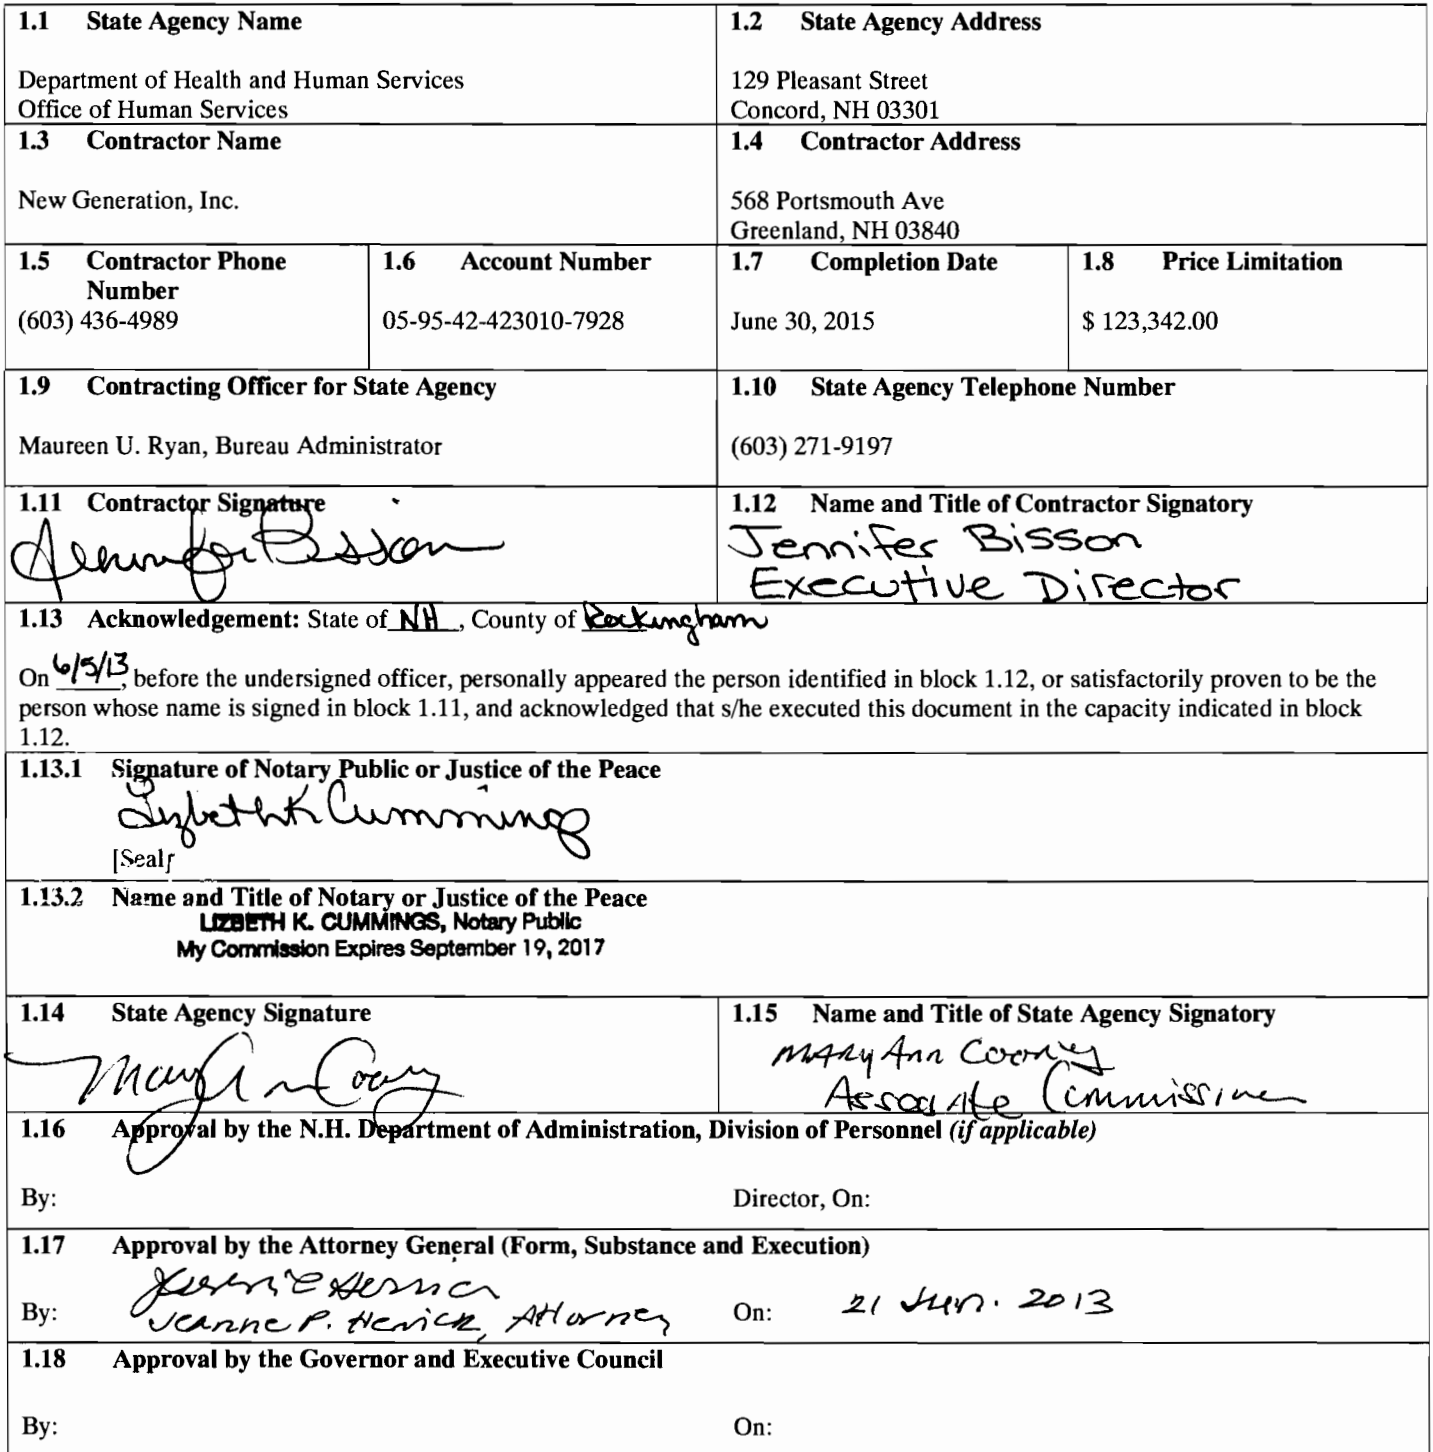 1.1 State Agency Name
Department of Health and Human Services
Office of Human Services
1.2 State Agency Address
129 Pleasant Street
Concord, NH 03301
1.3 Contractor Name
New Generation, Inc.
1.4 Contractor Address
568 Portsmouth Ave
Greenland, NH 03840
1.5 Contractor Phone
Number
(603) 436-4989
1.6 Account Number
05-95-42-423010-7928
1.7 Completion Date
June 30, 2015
1.8 Price Limitation
$ 123,342.00
1.9 Contracting Officer for State Agency
Maureen U. Ryan, Bureau Administrator
1.10 State Agency Telephone Number
(603) 271-9197
1.11 Contractor Signature
Jennifer Bisson
1.12 Name and Title of Contractor Signatory
Jennifer Bisson
Executive Director
1.13 Acknowledgement: State of NH, County of Rockingham
On 6/5/13, before the undersigned officer, personally appeared the person identified in block 1.12, or satisfactorily proven to be the
person whose name is signed in block 1.11, and acknowledged that s/he executed this document in the capacity indicated in block
1.12.
1.13.1 Signature of Notary Public or Justice of the Peace
Lizbeth K Cummings
[Seal]
1.13.2 Name and Title of Notary or Justice of the Peace
LIZBETH K. CUMMINGS, Notary Public
My Commission Expires September 19, 2017
1.14 State Agency Signature
Mary Ann Cooney
1.15 Name and Title of State Agency Signatory
Mary Ann Cooney
Associate Commissioner
1.16 Approval by the N.H. Department of Administration, Division of Personnel (if applicable)
By:
Director, On:
1.17 Approval by the Attorney General (Form, Substance and Execution)
By: Jeanne P. Herrick, Attorney
On: 21 Jun. 2013
1.18 Approval by the Governor and Executive Council
By:
On: